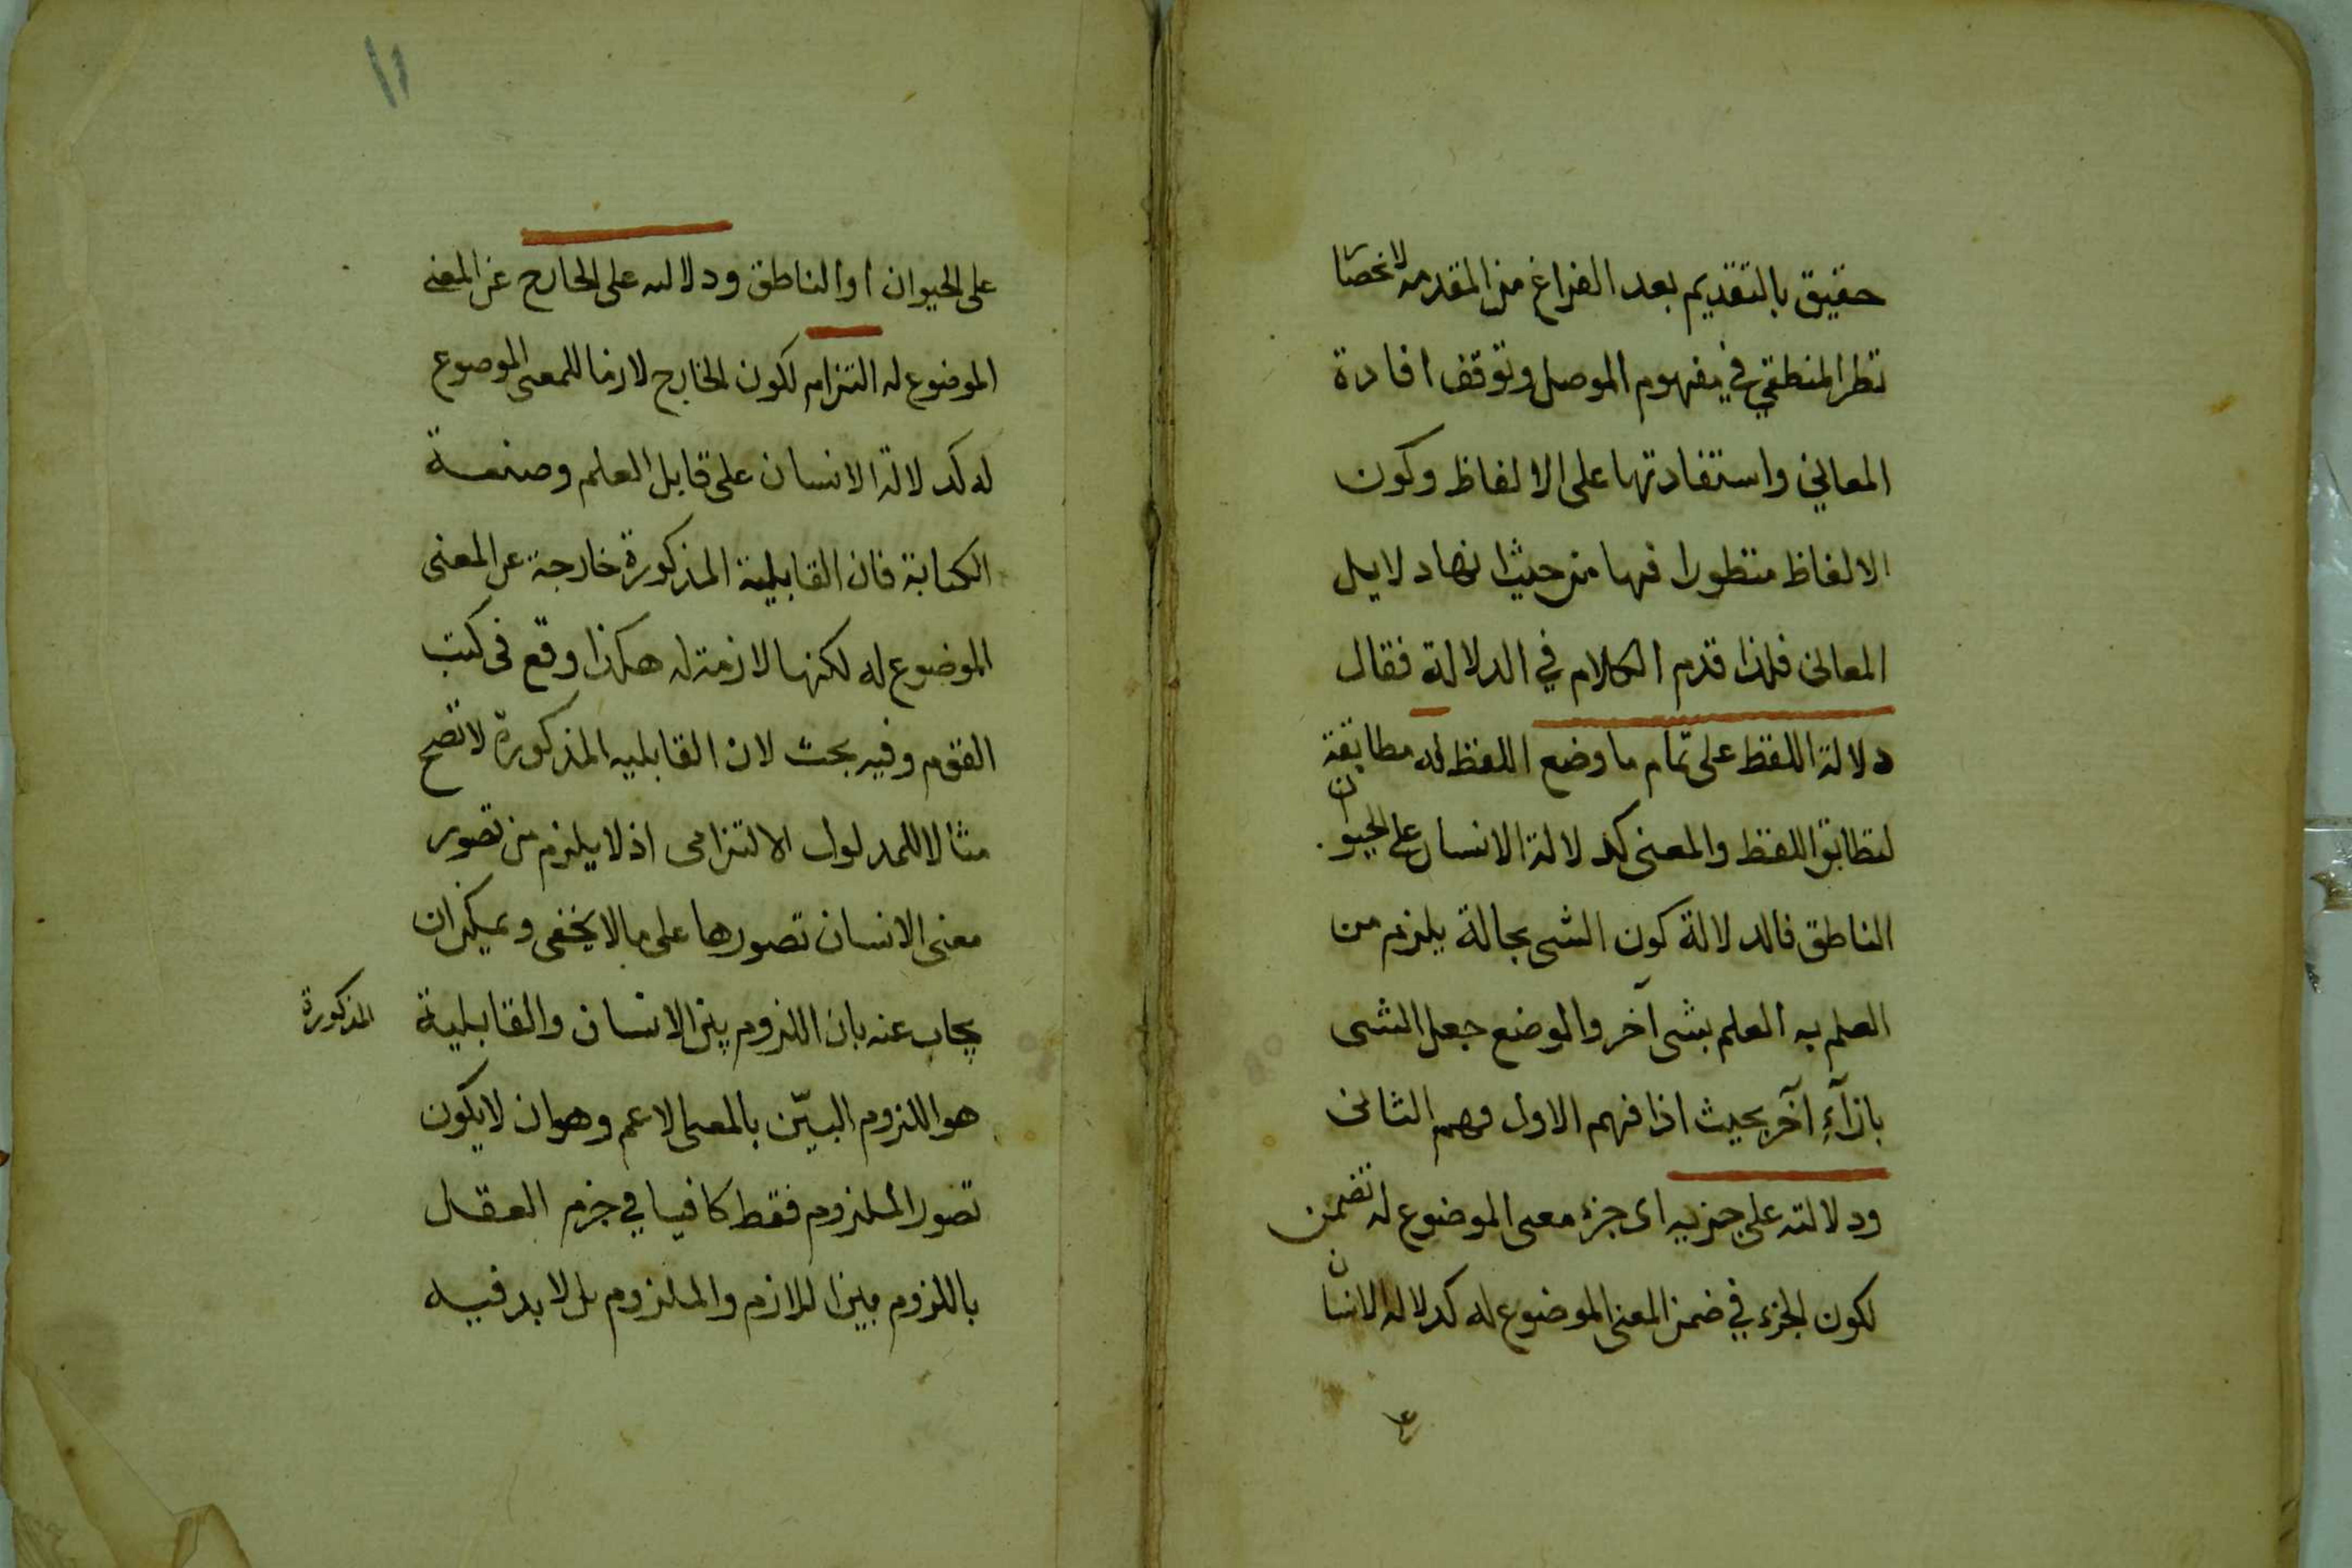 حقيق بالتقديم بعد الفراغ من المقدمه لانحصار
نظر المنطقي في مفهوم الموصل وتوقف افادة
المعاني واستفادتها على الالفاظ وكون
الالفاظ منظورا فيها من حيث انها دلايل
المعانى فلذا قدم الكلام في الدلالة فقال
دلالة اللفظ على تمام ما وضع اللفظ له مطابقة
لتطابق اللفظ والمعنى كدلالة الانسان على الحيوان
الناطق فالدلالة كون الشى بحالة يلزم من
العلم به العلم بشى آخر والوضع جعل الشى
بازآءِ آخر بحيث اذا فهم الاول فهم الثانى
ودلالته على جزيه اى جزء معنى الموضوع له تضمن
لكون الجزء في ضمن المعنى الموضوع له كدلاله الانسان
١١
على الحيوان او الناطق ودلالته على الخارج عن المعنى
الموضوع له التزام لكون الخارج لازما للمعنى الموضوع
له كدلالة الانسان على قابل العلم وصنعة
الكتابة فان القابلية المذكورة خارجة عن المعنى
الموضوع له لكنها لازمة له هكذا وقع فى كتب
القوم وفيه بحث لان القابليه المذكورة لا تصح
مثالا للمدلول الالتزامى اذ لا يلزم من تصور
معنى الانسان تصورها على ما لا يخفى ويمكن ان
يجاب عنه بان اللزوم بين الانسان والقابلية المذكورة
هو اللزوم البيّن بالمعنى الاعم وهو ان لا يكون
تصور الملزوم فقط كافيا في جزم العقل
باللزوم بين اللازم والملزوم بل لا بد فيه